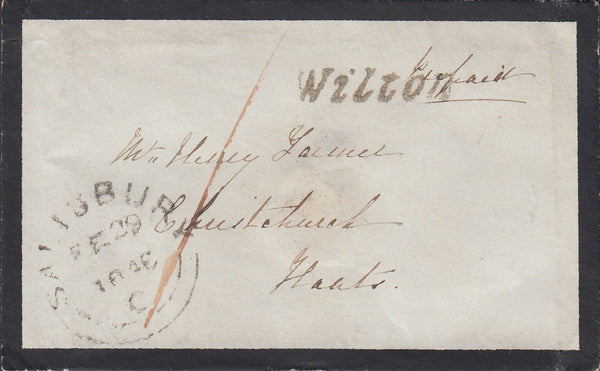 Wilton
Prepaid
Mr Henry Farmer
Christchurch
Hants.
SALISBURY
FE 29
1848
C
1